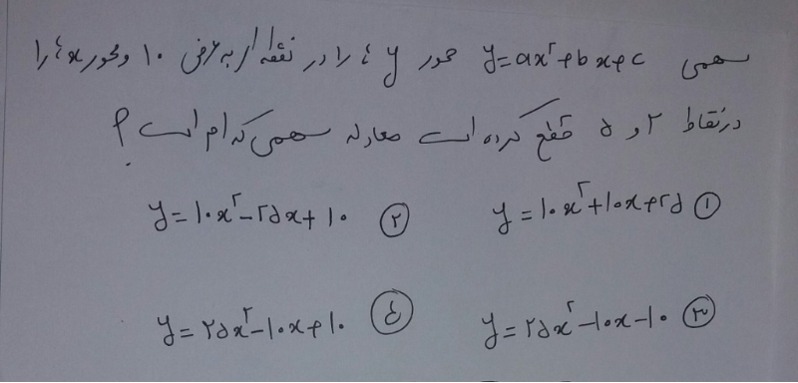 سهمی y=ax²+bx+c محور y ها را در نقطه ای به عرض ۱۰ و محور x ها را
در نقاط ۲ و ۵ قطع کرده است معادله سهمی کدام است؟
① y=۱۰x²+۱۰x+۲۵ ② y=۱۰x²-۲۵x+۱۰
③ y=۲۵x²-۱۰x-۱۰ ④ y=۲۵x²-۱۰x+۱۰